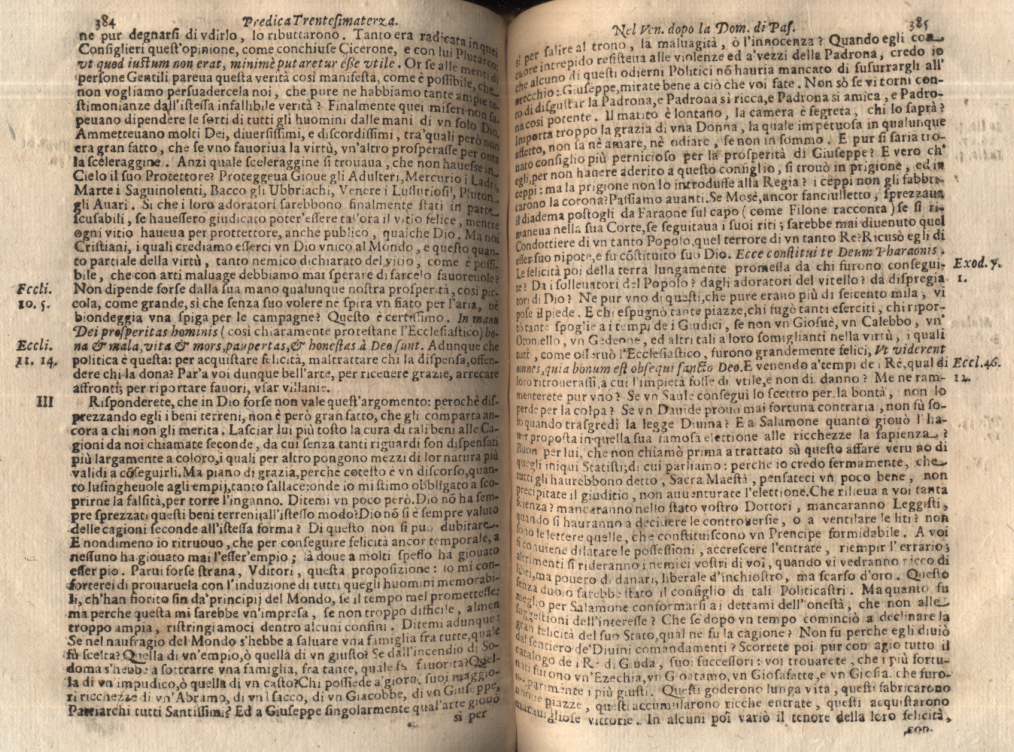 384 Predica Trentesimaterza.
ne pur degnarsi di vdirlo, lo ributtarono. Tanto era radicata in quei
Consiglieri quest'opinione, come conchiuse Cicerone, e con lui Plutarco:
vt quod iustum non erat, minimè putaretur esse vtile. Or se alle menti di
persone Gentili pareua questa verità così manifesta, come è possibile, che
non vogliamo persuadercela noi, che pure ne habbiamo tante ampie te-
stimonianze dall'istessa infallibile verità? Finalmente quei miseri non sa-
peuano dipendere le sorti di tutti gli huomini dalle mani di vn solo Dio.
Ammetteuano molti Dei, diuersissimi, e discordissimi, tra'quali però non
era gran fatto, che se vno fauoriua la virtù, vn'altro prosperasse per onta
la sceleraggine. Anzi quale sceleraggine si trouaua, che non hauesse in
Cielo il suo Protettore? Proteggeua Gioue gli Adulteri, Mercurio i Ladri,
Marte i Saguinolenti, Bacco gli Vbbriachi, Venere i Lussuriosi, Pluton
gli Auari. Si che i loro adoratori sarebbono finalmente stati in parte
scusabili, se hauessero giudicato poter'essere tal'ora il vitio felice, mentre
ogni vitio haueua per prottettore, anche publico, qualche Dio. Ma noi
Cristiani, i quali crediamo esserci vn Dio vnico al Mondo, e questo quan-
to partiale della virtù, tanto nemico dichiarato del vicio, come è possi-
bile, che con arti maluage debbiamo mai sperare di farcelo fauoreuole?
Eccli. 10. 5. Non dipende forse dalla sua mano qualunque nostra prosperità, così pic-
cola, come grande, sì che senza suo volere ne spira vn fiato per l'aria, nè
biondeggia vna spiga per le campagne? Questo è certissimo. In manu
Dei prosperitas hominis (così chiaramente protestano l'Ecclesiastico) bo-
Eccli. 11. 14. na & mala, vita & mors, paupertas, & honestas à Deo sunt. Adunque che
politica è questa: per acquistare felicità, maltrattare chi la dispensa, offen-
dere chi la dona? Par'a voi dunque bell'arte, per riceuere grazie, arrecare
affronti; per riportare fauori, vsar villanie.
III Risponderete, che in Dio forse non vale quest'argomento: perochè dis-
prezzando egli i beni terreni, non è però gran fatto, che gli comparta an-
cora a chi non gli merita. Lasciar lui più tosto la cura di tali beni alle Ca-
gioni da noi chiamate seconde, da cui senza tanti riguardi son dispensati
più largamente a coloro, i quali per altro pongono mezzi di lor natura più
validi a cōseguirli. Ma piano di grazia, perche cotesto è vn discorso, quan-
to lusingheuole agli empij, tanto fallace: onde io mi stimo obbligato a sco-
prirne la falsità, per torre l'inganno. Ditemi vn poco però. Dio nō ha sem-
pre sprezzati questi beni terreni all'istesso modo? Dio nō si è sempre valuto
delle cagioni seconde all'istessa forma? Di questo non si può dubitare.
E nondimeno io ritruouo, che per conseguire felicità ancor temporale, a
nessuno ha giouato mai l'esser'empio; là doue a molti spesso ha giouato
esser pio. Parui forse strana, Vditori, questa proposizione: io mi con-
forterei di prouaruela con l'induzione di tutti quegli huomini memorabi-
li, ch'han fiorito fin da'principij del Mondo, se il tempo mel promettesse:
ma perche questa mi sarebbe vn'impresa, se non troppo difficile, almen
troppo ampia, ristringiamoci dentro alcuni confini. Ditemi adunque:
Se nel naufragio del Mondo s'hebbe a saluare vna famiglia fra tutte, quale
fù scelta? Quella di vn'empio, ò quella di vn giusto? Se dall'incendio di So-
doma s'hebbe a sottrarre vna famiglia, fra tante, quale fù fauorita? Quel-
la di vn'impudico, ò quella di vn casto? Chi possiede a gioro, suoi maggio-
ri ricchezze di vn'Abramo, di vn Isacco, di vn Giacobbe, di vn Giuseppe,
Patriarchi tutti Santissimi? Ed a Giuseppe singolarmente qual'arte giouò
sì per
Nel Ven. dopo la Dom. di Pas. 385
sì per salire al trono, la maluagità, ò l'innocenza? Quando egli con
cuore intrepido resisteua alle violenze ed a'vezzi della Padrona, credo io
che alcuno di questi odierni Politici nō hauria mancato di susurrargli all'
orecchio: Giuseppe, mirate bene a ciò che voi fate. Non sò se vi torni con-
to di disgustar la Padrona, e Padrona sì ricca, e Padrona sì amica, e Padro-
na così potente. Il marito è lontano, la camera è segreta, chi lo saprà?
Importa troppo la grazia di vna Donna, la quale impetuosa in qualunque
affetto, non sa nè amare, nè odiare, se non in sommo. E pur si saria tro-
uato consiglio più pernicioso per la prosperità di Giuseppe? E vero ch'
egli, per non hauere aderito a questo consiglio, si trouò in prigione, ed in
ceppi: ma la prigione non lo introdusse alla Regia? i ceppi non gli fabbri-
carono la corona? Passiamo auanti. Se Mosè, ancor fanciulletto, sprezzaua
il diadema postogli da Faraone sul capo (come Filone racconta) se si ri-
maneua nella sua Corte, se seguitaua i suoi riti; sarebbe mai diuenuto quel
Condottiere di vn tanto Popolo, quel terrore di vn tanto Re? Ricusè egli di
esser suo nipote, e fu cōstituito suo Dio. Ecce constitui te Deum Pharaonis.
Exod. 7. 1. Le felicità poi della terra lungamente promessa da chi furono consegui-
te? Da i solleuatori del Popolo? dagli adoratori del vitello? da dispregia-
tori di Dio? Ne pur vno di questi, che pure erano più di seicento mila, vi
pose il piede. E chi espugnò tante piazze, chi fugò tanti eserciti, chi ripor-
tò tante spoglie a i tempi de i Giudici, se non vn Giosuè, vn Calebbo, vn'
Otoniello, vn Gedeone, ed altri tali a loro somiglianti nella virtù, i quali
tutti, come osseruò l'Ecclesiastico, furono grandemente felici, Vt viderent
Eccl. 46. 12. omnes, quia bonum est obsequi sancto Deo. E venendo a'tempi de i Rè, qual di
loro ritrouerassi, a cui l'impietà fosse di vtile, e non di danno? Me ne ram-
menterete pur vno? Se vn Saule conseguì lo scettro per la bontà, non lo
perde per la colpa? Se vn Dauide prouò mai fortuna contraria, non fù so-
lo quando trasgredì la legge Diuina? E a Salamone quanto giouò l'ha-
uer proposta in quella sua famosa elettione alle ricchezze la sapienza?
Buon per lui, che non chiamò prima a trattato sù questo affare veruno di
quegli iniqui Statisti, di cui parliamo: perche io credo fermamente, che
tutti gli haurebbono detto, Sacra Maestà, pensateci vn poco bene, non
precipitate il giuditio, non auuenturate l'elettione. Che rilieua a voi tanta
scienza? mancaranno nello stato vostro Dottori, mancaranno Leggisti,
quando si hauranno a decidere le controuersie, o a ventilare le liti? non
sono le lettere quelle, che constituiscono vn Prencipe formidabile. A voi
si conuiene dilatare le possessioni, accrescere l'entrate, riempir l'errario;
altrimenti si rideranno i nemici vostri di voi, quando vi vedranno ricco di
libri, ma pouero di danari, liberale d'inchiostro, ma scarso d'oro. Questo
senza dubio sarebbe stato il consiglio di tali Politicastri. Ma quanto fu
meglio per Salamone conformarsi a i dettami dell'onestà, che non alle
suggestioni dell'interesse? Che se dopo vn tempo cominciò a declinare la
gran felicità del suo Stato, qual ne fu la cagione? Non fu perche egli diuiò
dal sentiero de'Diuini comandamenti? Scorrete poi pur con agio tutto il
catalogo de i Rè di Giuda, suoi successori: voi trouarete, che i più fortu-
nati furono vn'Ezechia, vn Gioatamo, vn Giosafatte, e vn Giosia. che furo-
no parimente i più giusti. Questi goderono lunga vita, questi fabricarono
piazze, questi accumularono ricche entrate, questi acquistarono
marauigliose vittorie. In alcuni poi variò il tenore della loro felicità,
con-